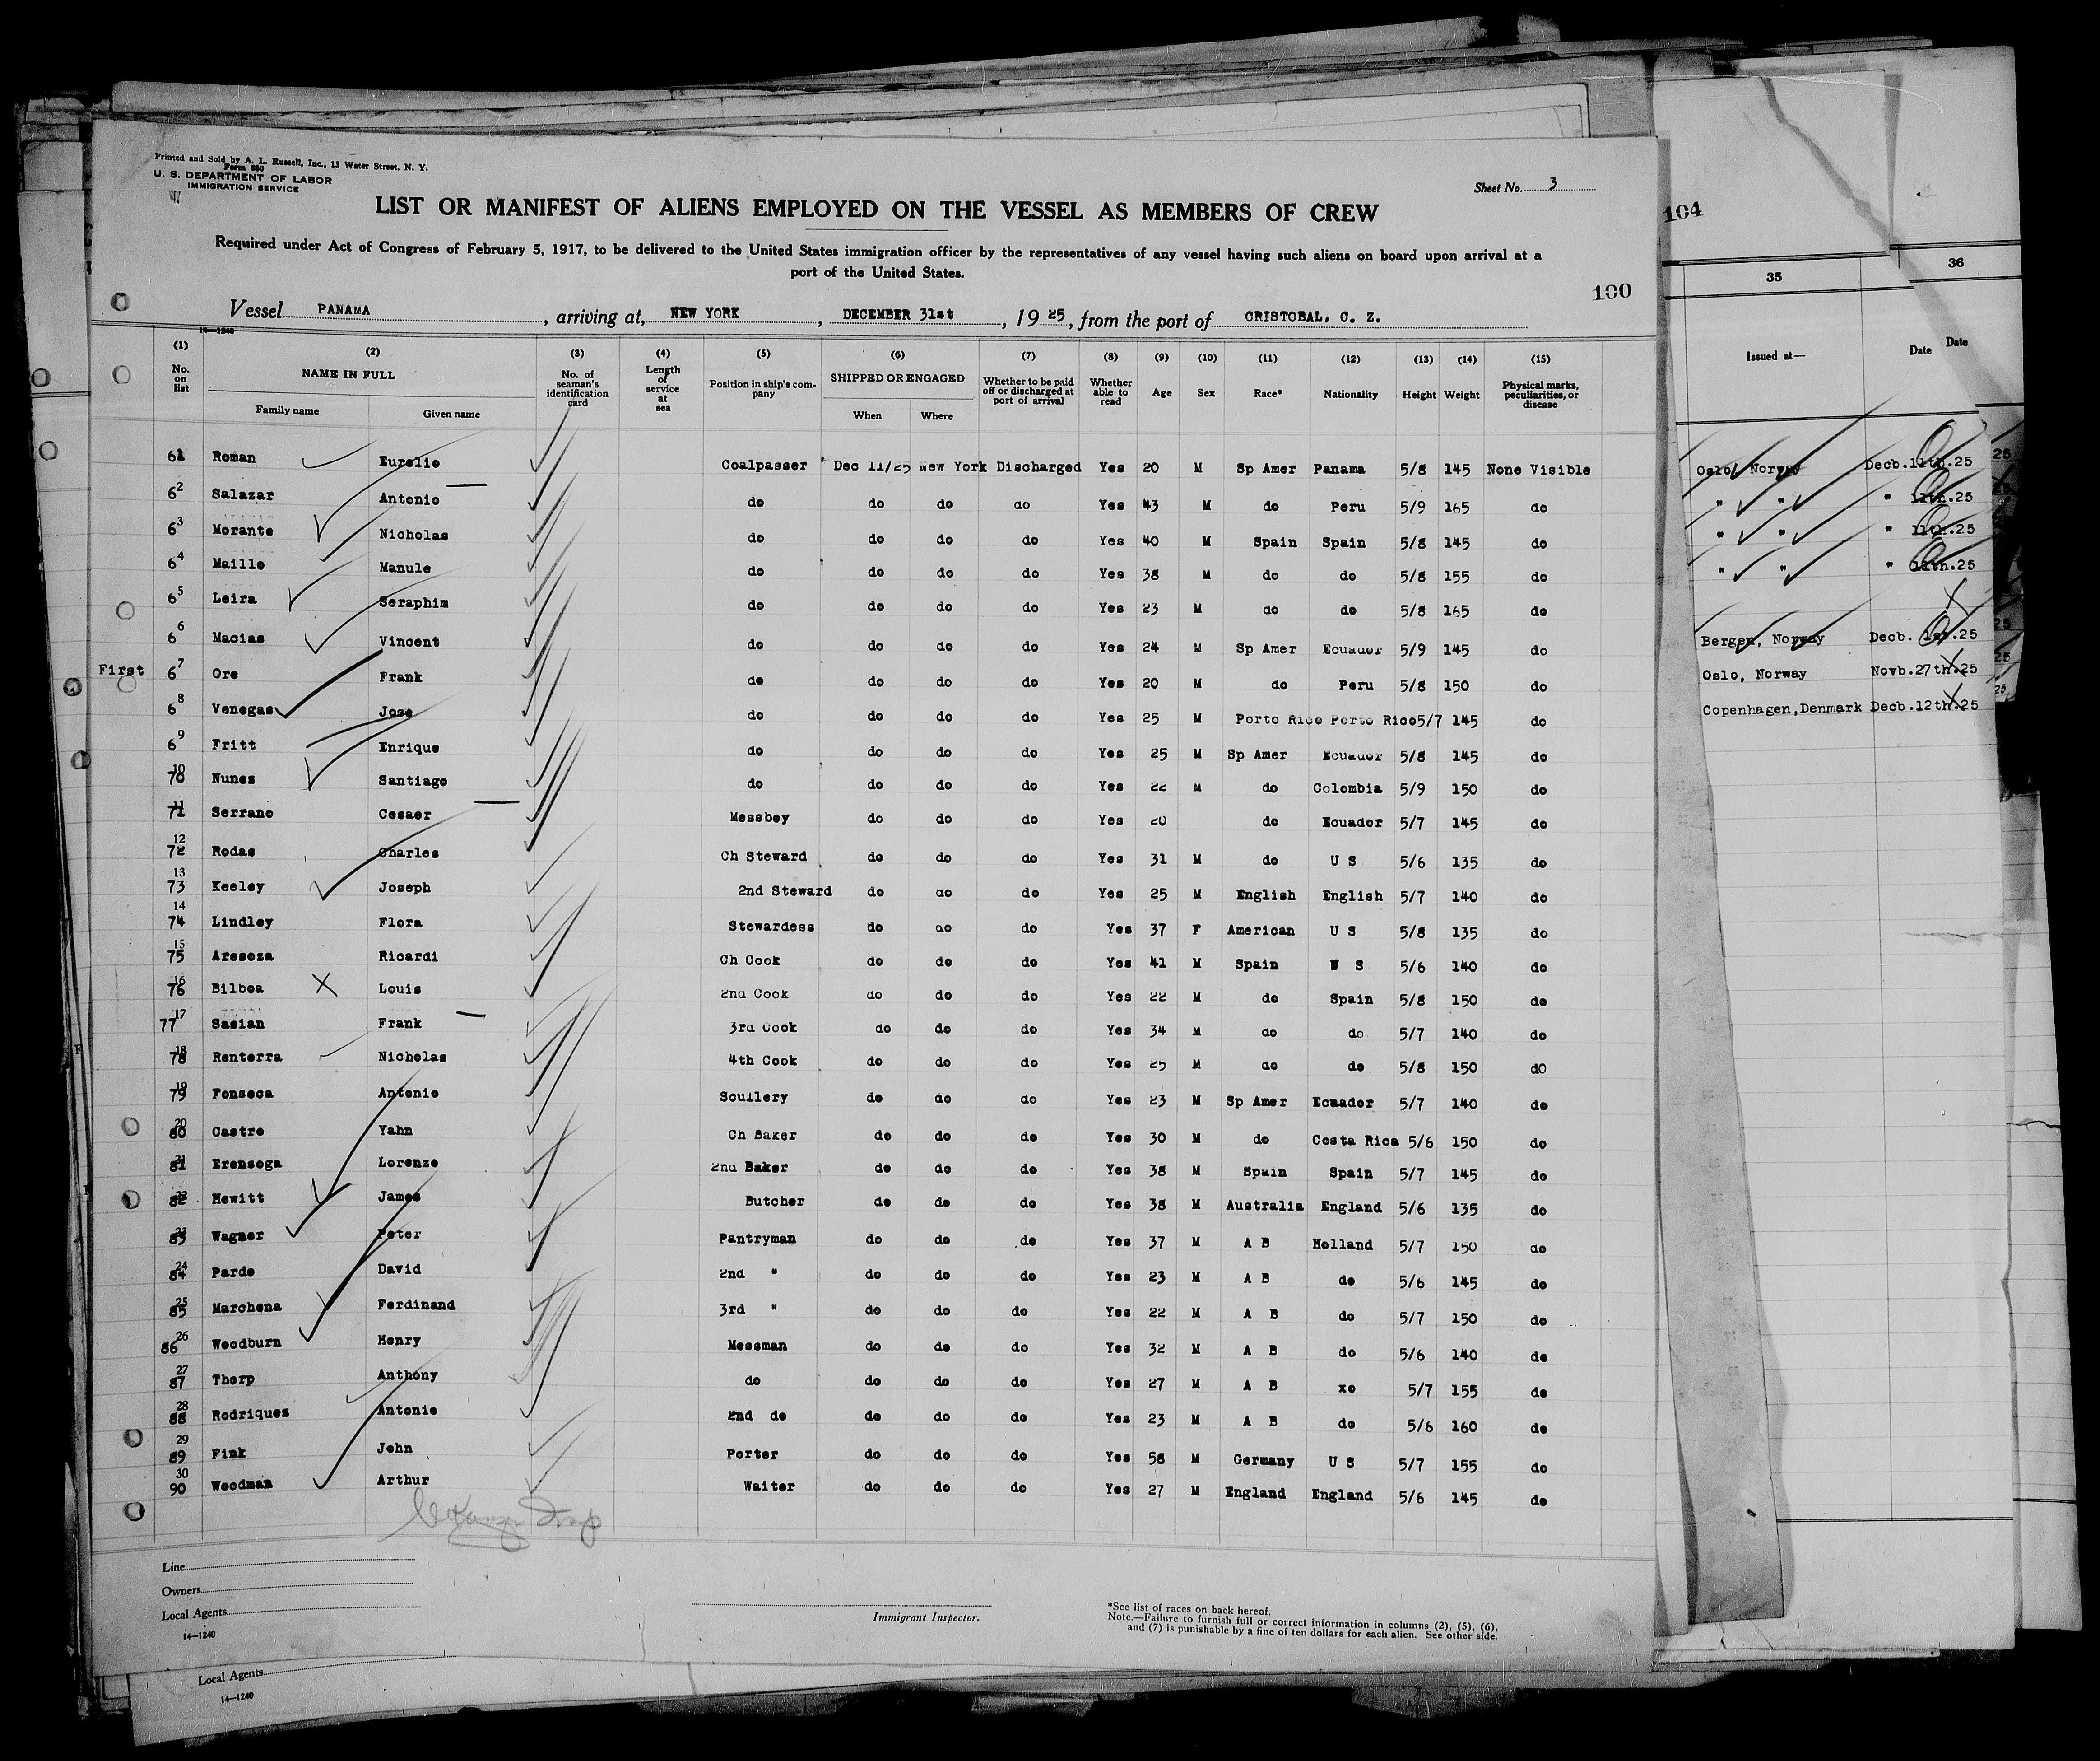 Printed and Sold by A. L. Russell, Inc., 13 Water Street, N. Y.
Form 680
U. S. DEPARTMENT OF LABOR
IMMIGRATION SERVICE
Sheet No. 3
LIST OR MANIFEST OF ALIENS EMPLOYED ON THE VESSEL AS MEMBERS OF CREW
Required under Act of Congress of February 5, 1917, to be delivered to the United States immigration officer by the representatives of any vessel having such aliens on board upon arrival at a
port of the United States.
100
Vessel PANAMA, arriving at, NEW YORK, DECEMBER 31st, 19 25, from the port of CRISTOBAL, C. Z.
14—1240
(1) (2) (3) (4) (5) (6) (7) (8) (9) (10) (11) (12) (13) (14) (15)
No. on list NAME IN FULL Family name Given name No. of seaman's identification card Length of service at sea Position in ship's company SHIPPED OR ENGAGED When Where Whether to be paid off or discharged at port of arrival Whether able to read Age Sex Race* Nationality Height Weight Physical marks, peculiarities, or disease
61 Roman Eurelio Coalpasser Dec 11/25 New York Discharged Yes 20 M Sp Amer Panama 5/8 145 None Visible
62 Salazar Antonio do do do do Yes 43 M do Peru 5/9 165 do
63 Morante Nicholas do do do do Yes 40 M Spain Spain 5/8 145 do
64 Maille Manule do do do do Yes 38 M do do 5/8 155 do
65 Leira Seraphim do do do do Yes 23 M do do 5/8 165 do
66 Macias Vincent do do do do Yes 24 M Sp Amer Ecuador 5/9 145 do
First 67 Ore Frank do do do do Yes 20 M do Peru 5/8 150 do
68 Venegas Jose do do do do Yes 25 M Porto Rico Porto Rico 5/7 145 do
69 Fritt Enrique do do do do Yes 25 M Sp Amer Ecuador 5/8 145 do
70 10 Nunes Santiago do do do do Yes 22 M do Colombia 5/9 150 do
71 11 Serrano Cesaer Messboy do do do Yes 20 do Ecuador 5/7 145 do
72 12 Rodas Charles Ch Steward do do do Yes 31 M do U S 5/6 135 do
73 13 Keeley Joseph 2nd Steward do do do Yes 25 M English English 5/7 140 do
74 14 Lindley Flora Stewardess do do do Yes 37 F American U S 5/8 135 do
75 15 Aresoza Ricardi Ch Cook do do do Yes 41 M Spain S 5/6 140 do
76 16 Bilboa Louis 2nd Cook do do do Yes 22 M do Spain 5/8 150 do
77 17 Sasian Frank 3rd Cook do do do Yes 34 M do do 5/7 140 do
78 18 Renterra Nicholas 4th Cook do do do Yes 25 M do do 5/8 150 do
79 19 Fonseca Antonio Scullery do do do Yes 23 M Sp Amer Ecuador 5/7 140 do
80 20 Castro Yahn Ch Baker do do do Yes 30 M do Costa Rica 5/6 150 do
81 21 Erensoga Lorenzo 2nd Baker do do do Yes 38 M Spain Spain 5/7 145 do
82 22 Hewitt James Butcher do do do Yes 38 M Australia England 5/6 135 do
83 23 Wagner Peter Pantryman do do do Yes 37 M A B Holland 5/7 150 do
84 24 Pardo David 2nd " do do do Yes 23 M A B do 5/6 145 do
85 25 Marchena Ferdinand 3rd " do do do Yes 22 M A B do 5/7 150 do
86 26 Woodburn Henry Messman do do do Yes 32 M A B do 5/6 140 do
87 27 Thorp Anthony do do do do Yes 27 M A B xo 5/7 155 do
88 28 Rodriques Antonio 2nd do do do do Yes 23 M A B do 5/6 160 do
89 29 Fink John Porter do do do Yes 58 M Germany U S 5/7 155 do
90 30 Woodman Arthur Waiter do do do Yes 27 M England England 5/6 145 do
Line
Owners
Local Agents
14—1240
Immigrant Inspector.
*See list of races on back hereof.
Note.—Failure to furnish full or correct information in columns (2), (5), (6),
and (7) is punishable by a fine of ten dollars for each alien. See other side.
Local Agents
14—1240
104
35 36
Issued at— Date Date
Oslo, Norway Decb.11th.25
" " " 11th.25
" " " 11th.25
" " " 11th.25
Bergen, Norway Decb. 1st.25
Oslo, Norway Novb.27th.25
Copenhagen, Denmark Decb.12th.25